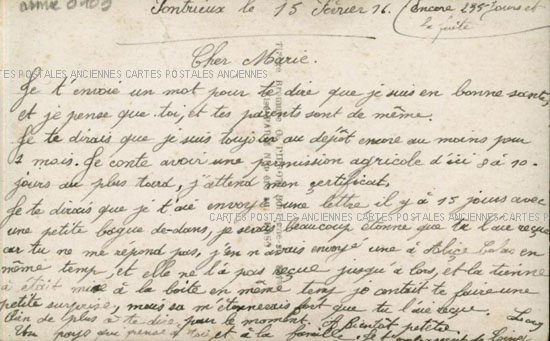 Pontrieux le 15 Février 16. (Encore 235 Jours et
la fuite
Cher Marie.
CARTES POSTALES ANCIENNES CARTES POSTALES ANCIENNES CARTES POSTALES ANCIENNES
Je t'envoie un mot pour te dire que je suis en bonne santé,
et je pense que toi, et tes parents sont de même.
Je te dirais que je suis toujour au dépôt encore au moins pour
2 mois. Je conte avoir une permission agricole d'ici 8 à 10-
jours au plus tard, j'attend mon certificat.
Je te dirais que je t'ai envoyé une lettre il y à 15 jours avec
CARTES POSTALES ANCIENNES CARTES POSTALES ANCIENNES CARTES POSTALES ANCIENNES
une petite bague de-dans, je serai beaucoup étonné que tu l'aie reçue
car tu ne me répond pas, j'en avais envoyé une à Alice
même temp, et elle ne l'a pas reçue jusqu'à lors, et la tienne
à était mise à la boîte en même temp je contait te faire une
petite surprise, mais sa m'étonnerait fort que tu l'aie reçue.
Rien de plus à te dire, pour le moment. A Bientôt petite.
Un pays qui pense à toi et à la famille.